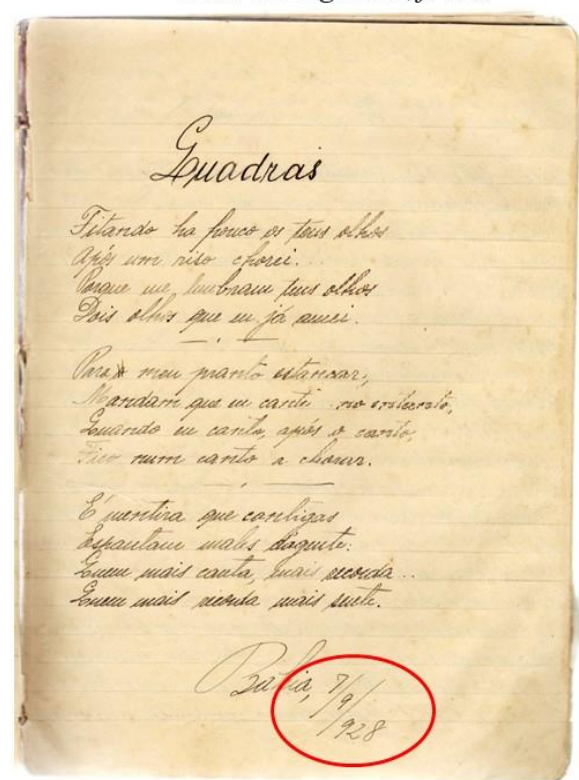 Quadras
Fitando ha pouco os teus olhos
Após um riso chorei...
Porque me lembram teus olhos
Dois olhos que eu já amei.
Para meu pranto estancar,
Mandam que eu cante no entanto,
Quando eu canto, após o canto,
Fico num canto a chorar.
E' mentira que cantigas
Espantam males
Quem mais canta, mais recorda..
Quem mais recorda mais sente.
Bahia, 7/9/928